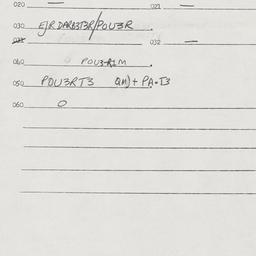 020 — 021 —
030 EJR DARB3T3R/POU3R
031 032 —
040 POU3-R1M
050 POU3RT3 QM)+ PA-T3
060 O